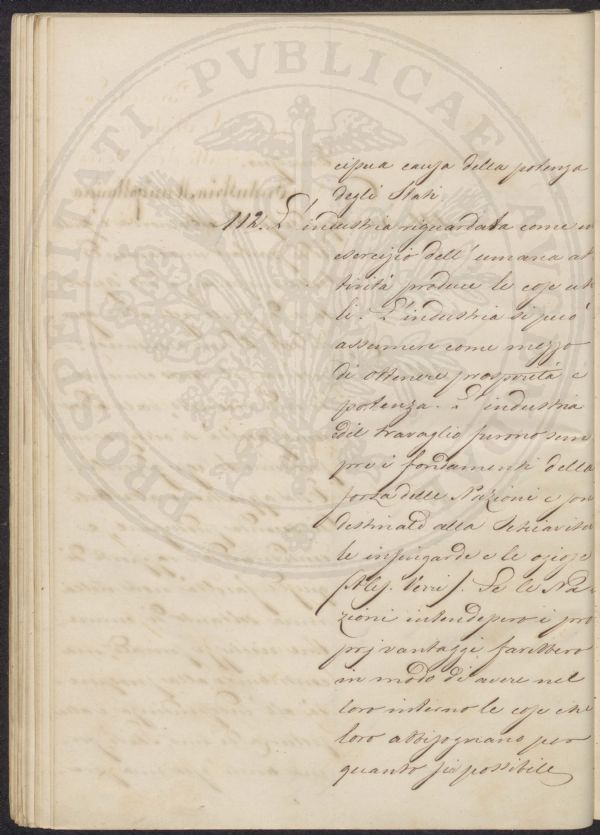 PROSPERITATI PVBLICAE AVG
cipua causa della potenza
degli Stati.
112. L'industria riguardata come
esercizio dell'umana at
tività produce le cose uti
li. L'industria si può
assumere come mezzo
di ottenere prosperità e
potenza. L'industria
ed il travaglio furono sem
pre i fondamenti della
forza delle Nazioni e son
destinate alla Schiavitù
le infingarde e le oziose
(Aless. Verri). Se le Na-
zioni intendessero i pro
prj vantaggi farebbero
in modo di avere nel
loro interno le cose che
loro abbisognano per
quanto sia possibile